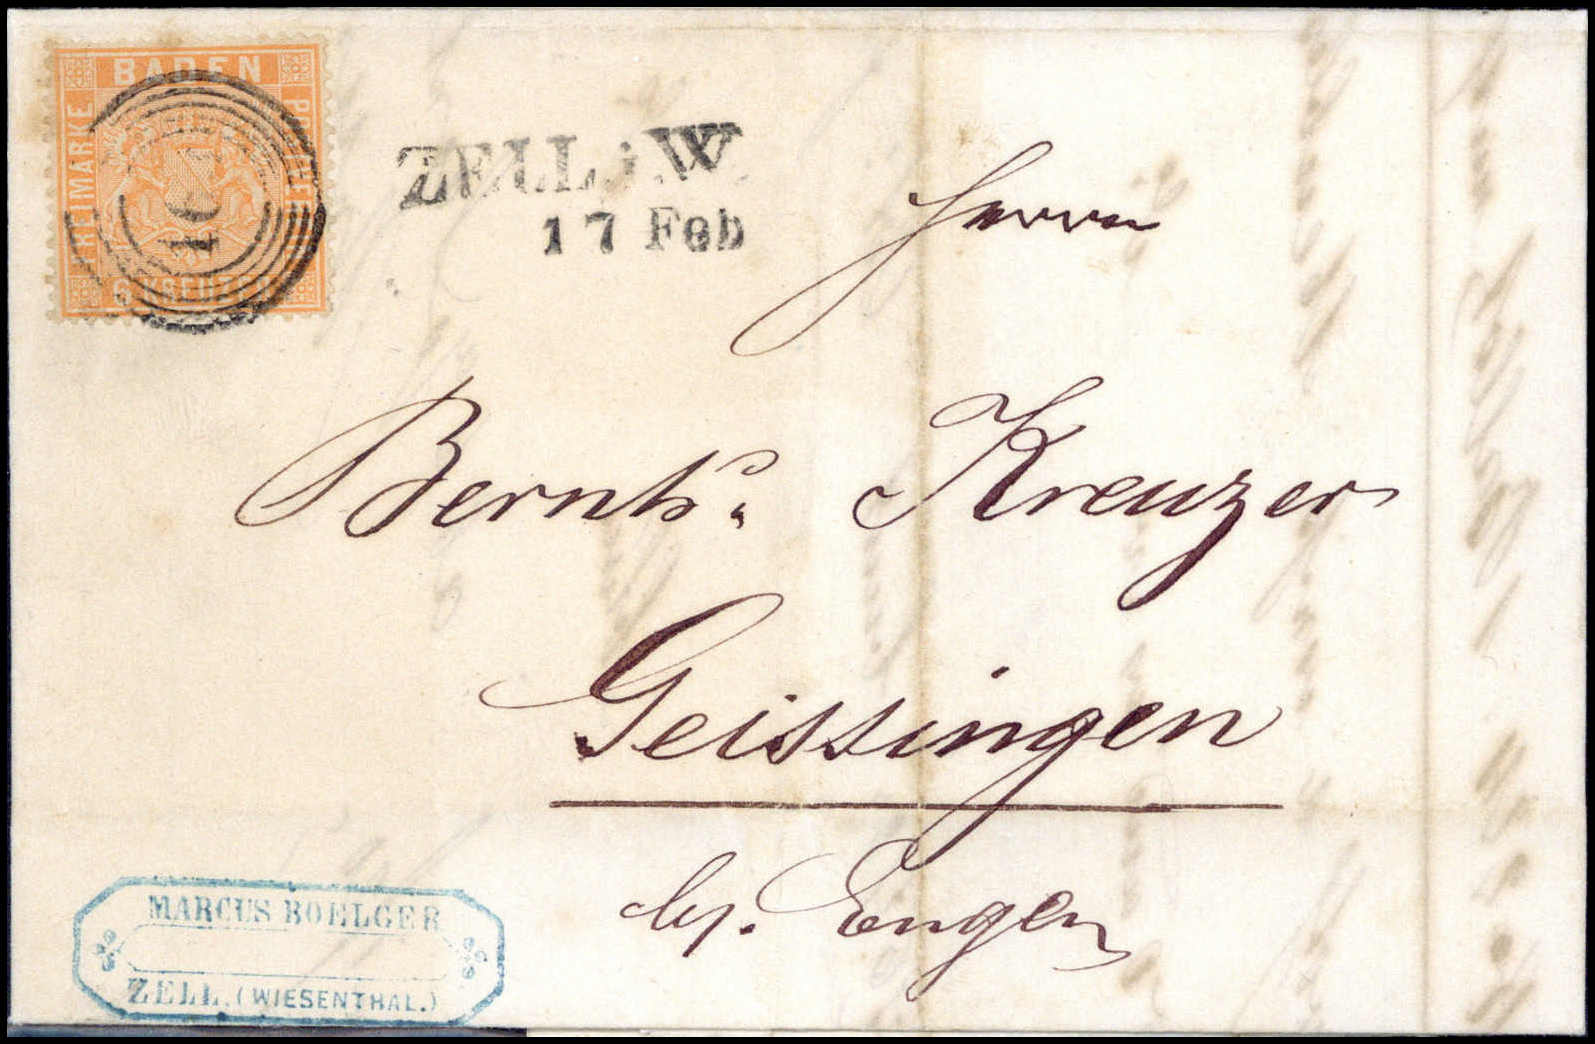 BADEN
FREIMARKE
ZELL i.W.
17 Feb
Herrn
Bernh. Kreuzer
Geissingen
by. Engen
MARCUS BOELGER
ZELL. (WIESENTHAL.)